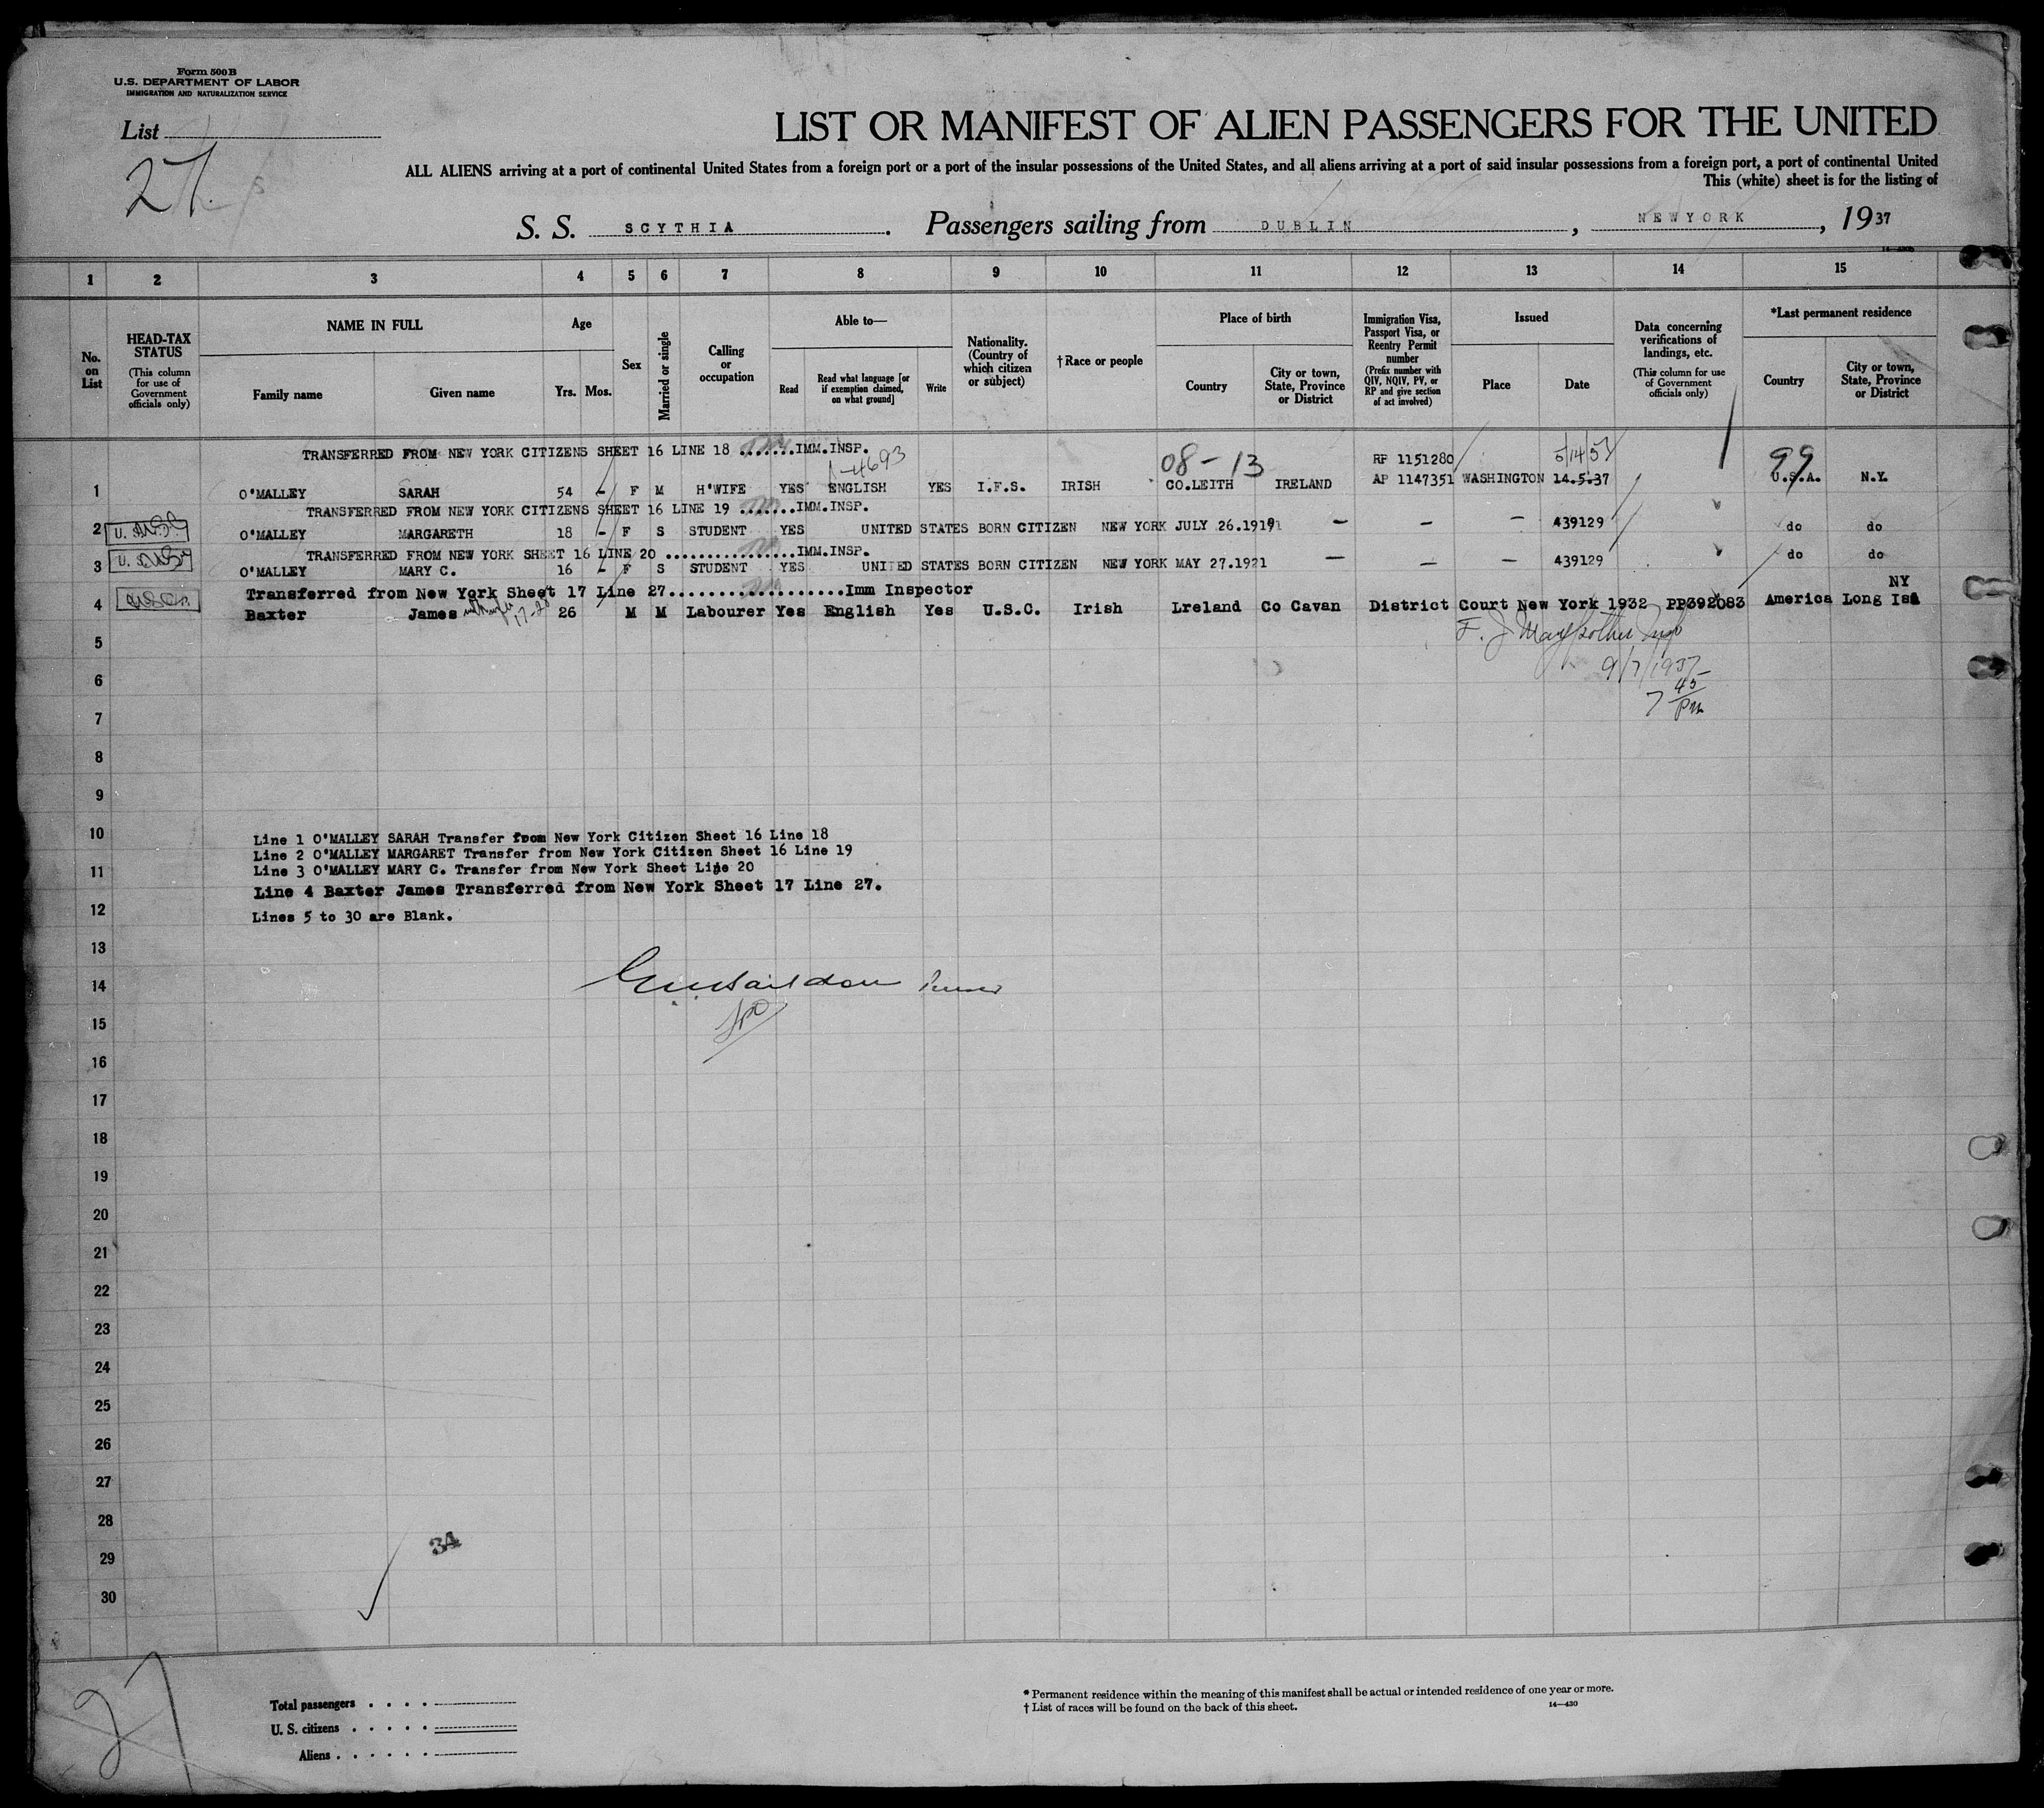 Form 500B
U.S. DEPARTMENT OF LABOR
IMMIGRATION AND NATURALIZATION SERVICE
List
27.
LIST OR MANIFEST OF ALIEN PASSENGERS FOR THE UNITED
ALL ALIENS arriving at a port of continental United States from a foreign port or a port of the insular possessions of the United States, and all aliens arriving at a port of said insular possessions from a foreign port, a port of continental United
This (white) sheet is for the listing of
S. S. SCYTHIA. Passengers sailing from DUBLIN, NEWYORK, 1937
1 2 3 4 5 6 7 8 9 10 11 12 13 14 15
No. on List
HEAD-TAX STATUS
(This column for use of Government officials only)
NAME IN FULL
Family name
Given name
Age
Yrs.
Mos.
Sex
Married or single
Calling or occupation
Able to—
Read
Read what language [or if exemption claimed, on what ground]
Write
Nationality. (Country of which citizen or subject)
†Race or people
Place of birth
Country
City or town, State, Province or District
Immigration Visa, Passport Visa, or Reentry Permit number
(Prefix number with QIV, NQIV, PV, or RP and give section of act involved)
Issued
Place
Date
Data concerning verifications of landings, etc.
(This column for use of Government officials only)
*Last permanent residence
Country
City or town, State, Province or District
TRANSFERRED FROM NEW YORK CITIZENS SHEET 16 LINE 18 .......IMM.INSP.
-4693 08-13 RP 1151280 5/14/37 99
1 O'MALLEY SARAH 54 - F M H'WIFE YES ENGLISH YES I.F.S. IRISH CO.LEITH IRELAND AP 1147351 WASHINGTON 14.5.37 U.S.A. N.Y.
TRANSFERRED FROM NEW YORK CITIZENS SHEET 16 LINE 19 .......IMM.INSP.
2 O'MALLEY MARGARETH 18 - F S STUDENT YES UNITED STATES BORN CITIZEN NEW YORK JULY 26.1919 - - - 439129 do do
TRANSFERRED FROM NEW YORK SHEET 16 LINE 20 ................IMM.INSP.
3 O'MALLEY MARY C. 16 - F S STUDENT YES UNITED STATES BORN CITIZEN NEW YORK MAY 27.1921 - - - 439129 do do
Transferred from New York Sheet 17 Line 27....................Imm Inspector
NY
4 Baxter James 26 M M Labourer Yes English Yes U.S.C. Irish Lreland Co Cavan District Court New York 1932 PP392083 America Long Isa
5
6 9/7/1937
7 7 45 Pm
8
9
10 Line 1 O'MALLEY SARAH Transfer from New York Citizen Sheet 16 Line 18
Line 2 O'MALLEY MARGARET Transfer from New York Citizen Sheet 16 Line 19
11 Line 3 O'MALLEY MARY C. Transfer from New York Sheet Line 20
Line 4 Baxter James Transferred from New York Sheet 17 Line 27.
12 Lines 5 to 30 are Blank.
13
14
15
16
17
18
19
20
21
22
23
24
25
26
27
28
29
34
30
27
Total passengers . . . .
U. S. citizens . . . . .
Aliens . . . . . .
* Permanent residence within the meaning of this manifest shall be actual or intended residence of one year or more.
† List of races will be found on the back of this sheet.
14—430